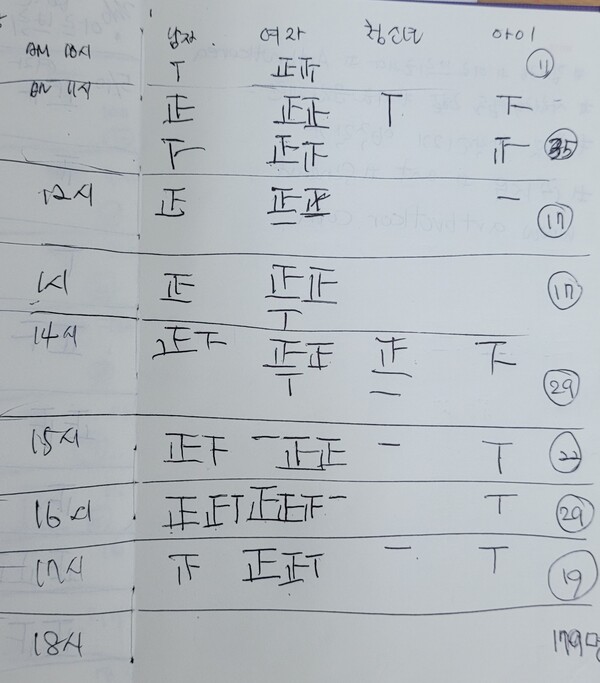 남자 여자 청소년 아이
AM 10시 T 正正 11
AM 11시 正 正正 T 下
下 正正 正 35
12시 正 正正 一 17
1시 正 正正 T 17
14시 正下 正正 T 正 一 下 29
15시 正下 一 正正 一 T 22
16시 正正T 正正正一 T 29
17시 正 正正T 一 T 19
18시 179명